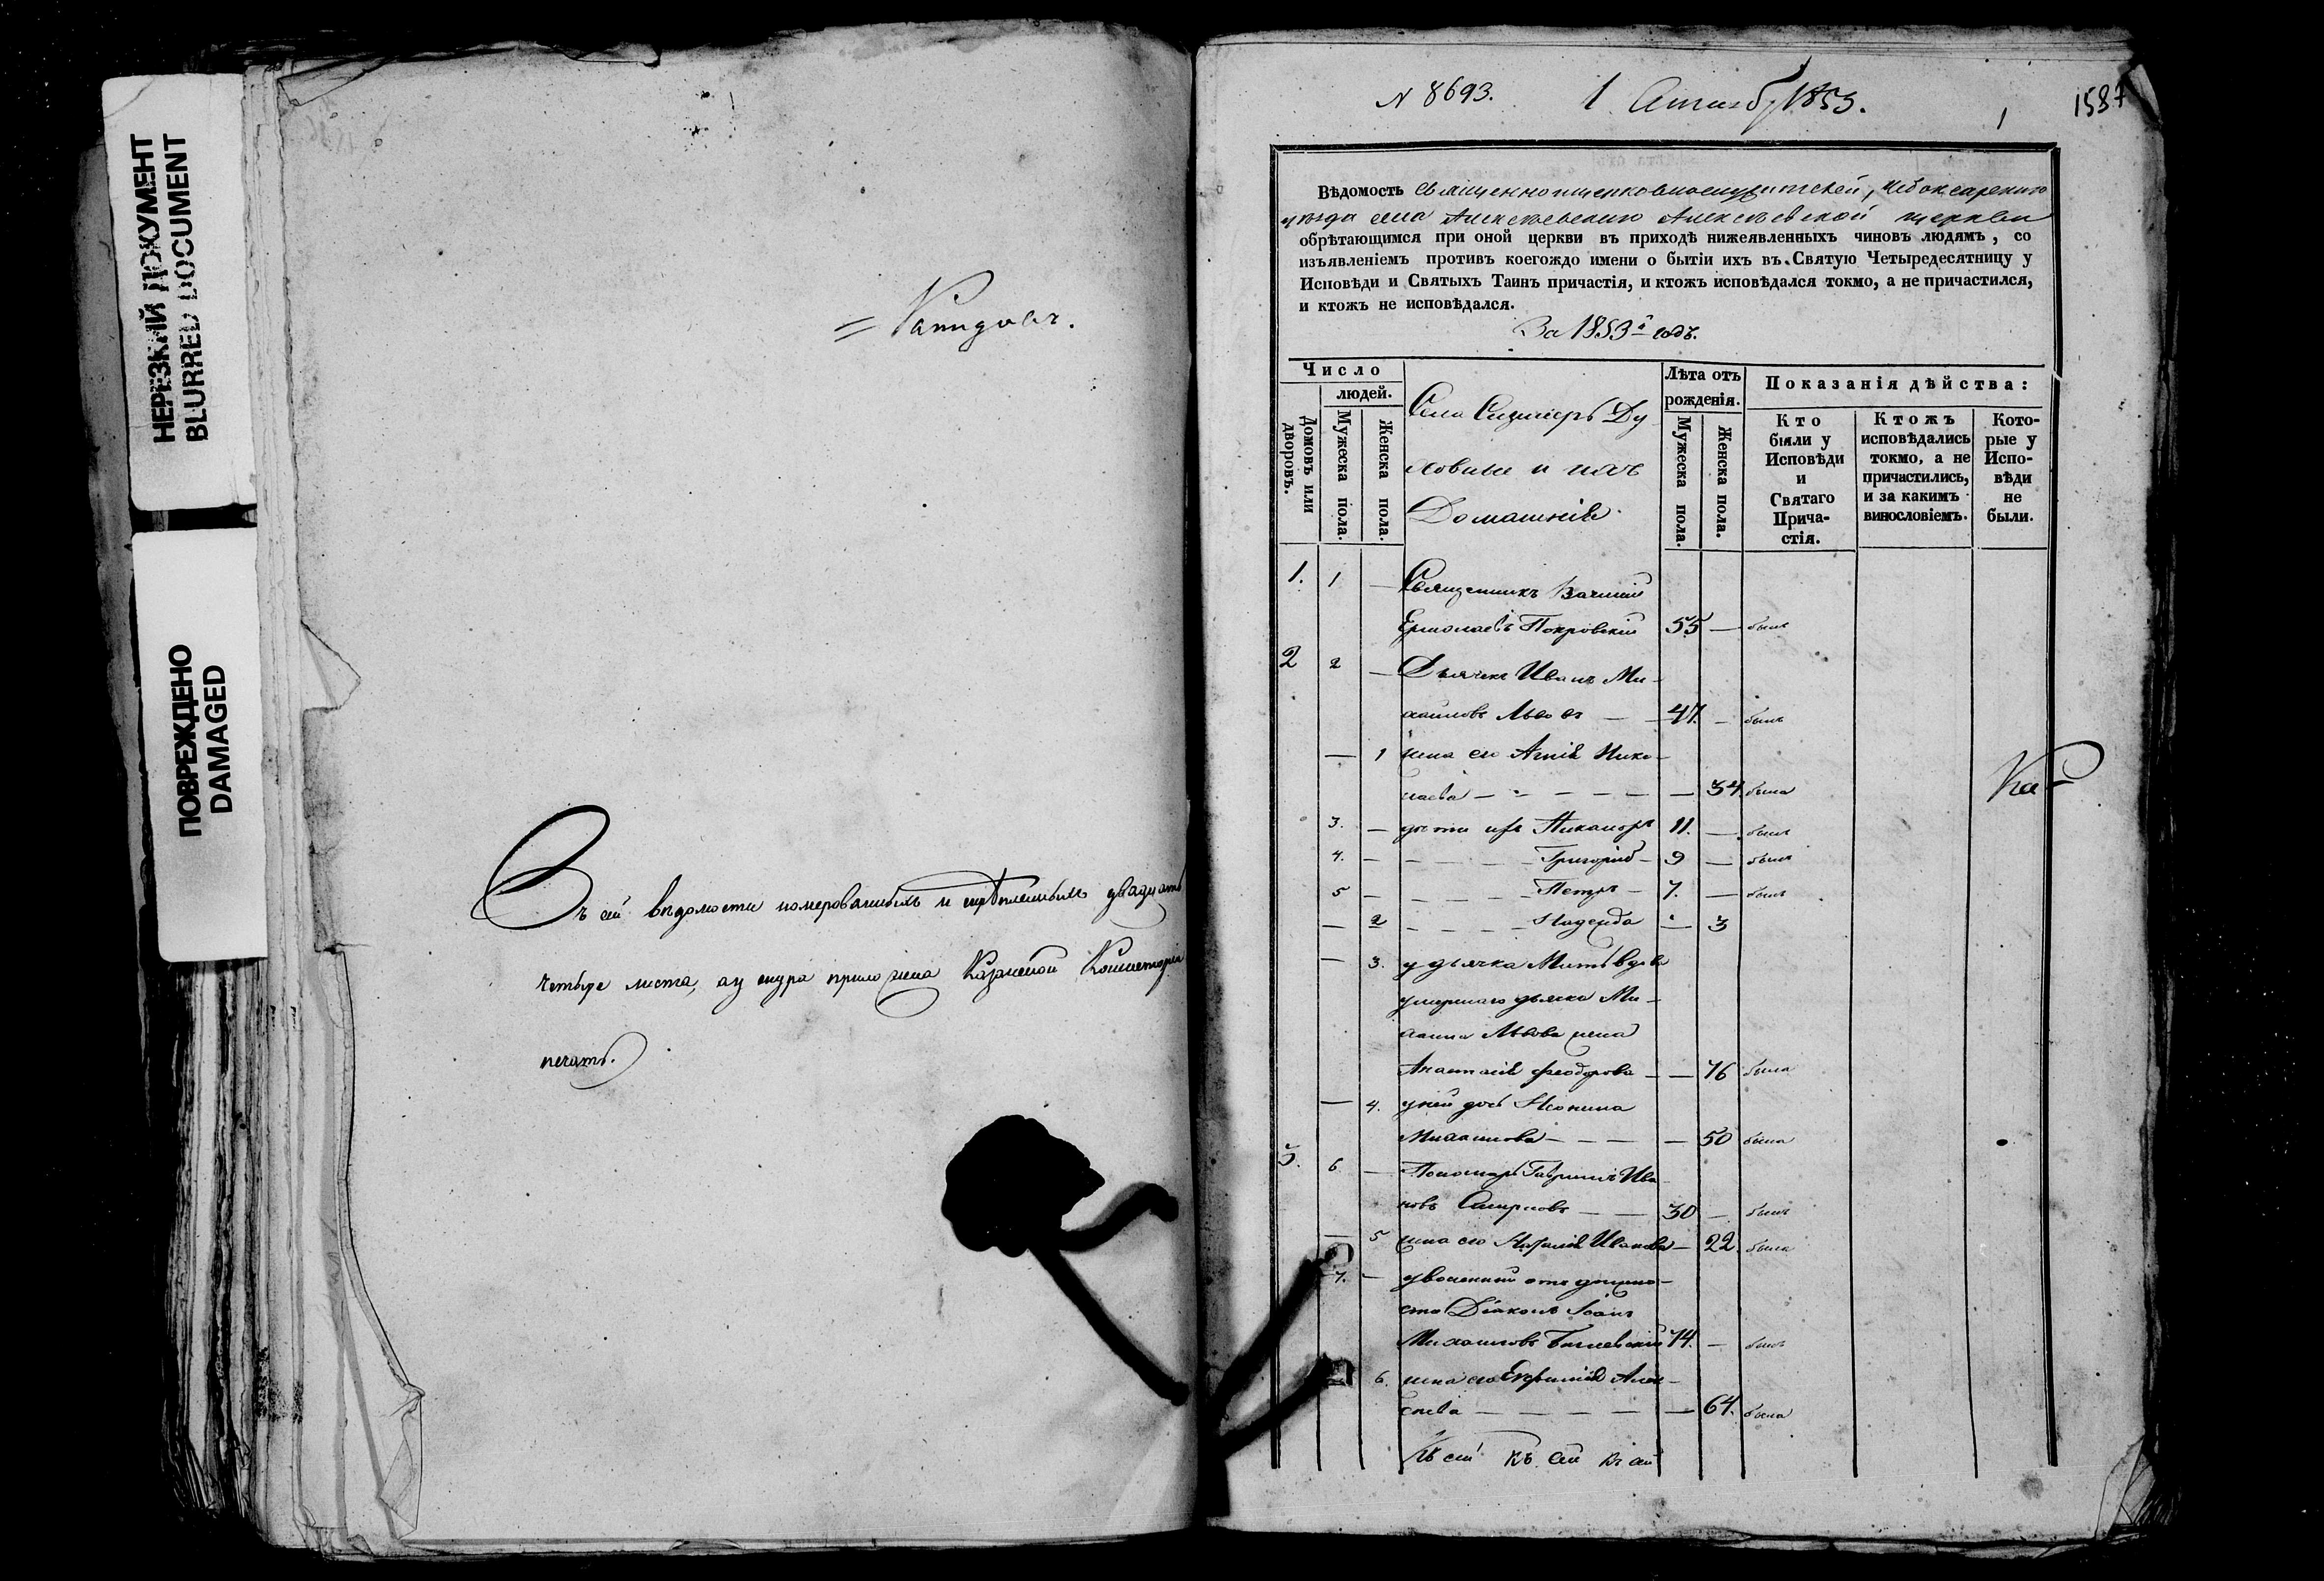 НЕРЕЗКИЙ ДОКУМЕНТ
BLURRED DOCUMENT
ПОВРЕЖДЕНО
DAMAGED
Въ сей вѣдомости номерованныхъ и скрѣпленныхъ двадцать
четыре листа, къ снура приложена Казанской Консисторіи
печать.
N 8693.
1 1853.
1
1587
Вѣдомость священноцерковнослужителей, Чебоксарскаго
уѣзда села Алексѣевскаго Алексѣевской церкви
обрѣтающимся при оной церкви въ приходѣ нижеявленныхъ чиновъ людямъ, со
изъявленіемъ противъ коегождо имени о бытіи ихъ въ Святую Четыредесятницу у
Исповѣди и Святыхъ Таинъ причастія, и ктожъ исповѣдался токмо, а не причастился,
и ктожъ не исповѣдался.
За 1853й годъ.
Число
людей.
Домовъ или дворовъ.
Мужеска пола.
Женска пола.
Села Ду
ховные и ихъ
Домашніе
Лѣта отъ рожденія.
Мужеска пола.
Женска пола.
Показанія дѣйства:
Кто были у Исповѣди и Святаго Причастія.
Ктожъ исповѣдались токмо, а не причастились, и за какимъ винословіемъ.
Которые у Исповѣди не были.
1. 1 — Священникъ Василій
Ермолаевъ Покровскій 55 — былъ
2 2 — Дьячекъ Иванъ Ми-
хайловъ Львовъ — 47. — былъ
— 1 жена его Нико-
лаева — — — — — — 34. была
3. — дѣти ихъ Никаноръ 11. — былъ
4. — — — — — Григорій — 9 — былъ
5 — — — — — Петръ — 7. — былъ
— 2 — — — — Надежда — 3
— 3. у дьячка Мать вдова
умершаго дьячка Ми-
хаила Львова жена
Анастасія Феодорова — — 76 была
— 4. у ней дочь
Михаилова — — — — 50 была
3. 6 — Пономарь Гавріилъ Ива-
новъ Смирновъ — — 30 — былъ
— 5 жена его Наталія Иванова — 22. была
7. — уволенный отъ должно-
сти Діаконъ Іоаннъ
Михаиловъ 74. — былъ
— 6. жена его Евфимія Алек-
сѣева — — — — — 64. была
Къ сей къ сей къ сей
Ка-